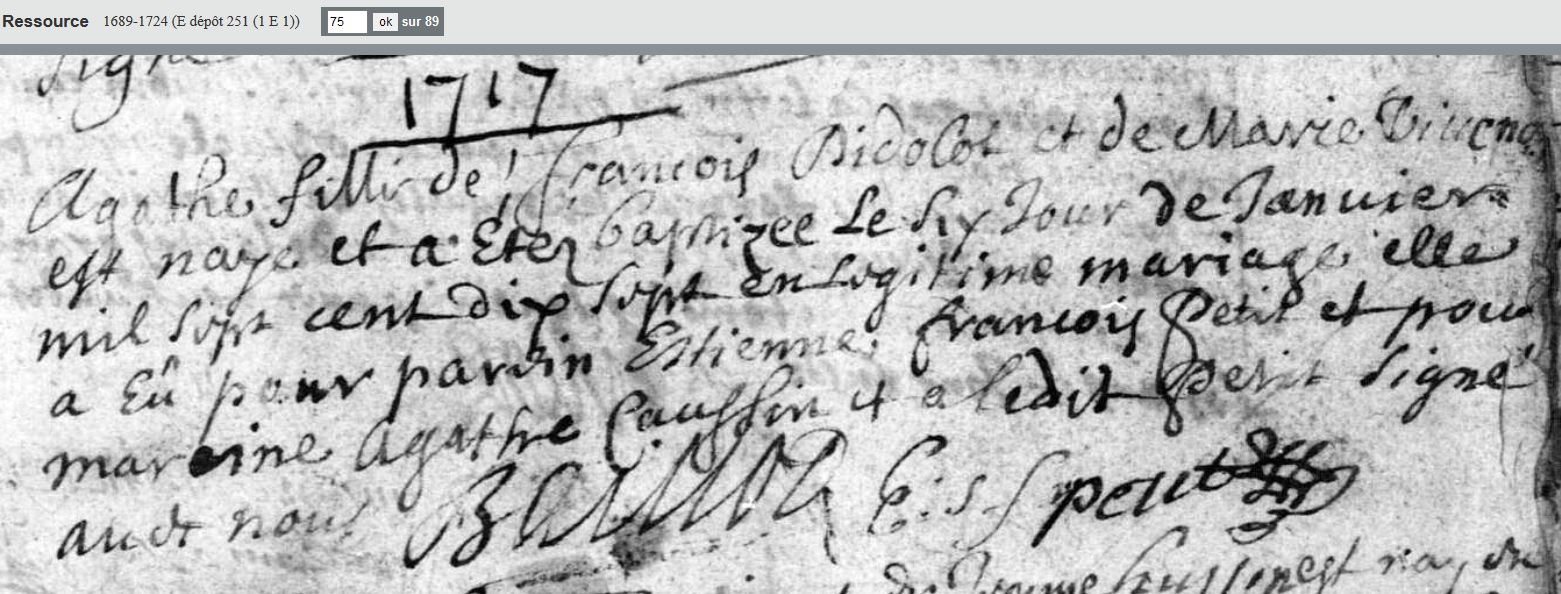 Ressource 1689-1724 (E dépôt 251 (1 E 1)) 75 ok sur 89
signé
1717
Agathe fille de francois Didolot et de Marie
est naye et a Etez baptizee Le six Jour de Januier
mil sept cent dix sept en Legitime mariage elle
a Eû pour parain Estienne francois Petit et pour
mareine Agathe Caussin et a ledit Petit signé
auct nous petit
est nay